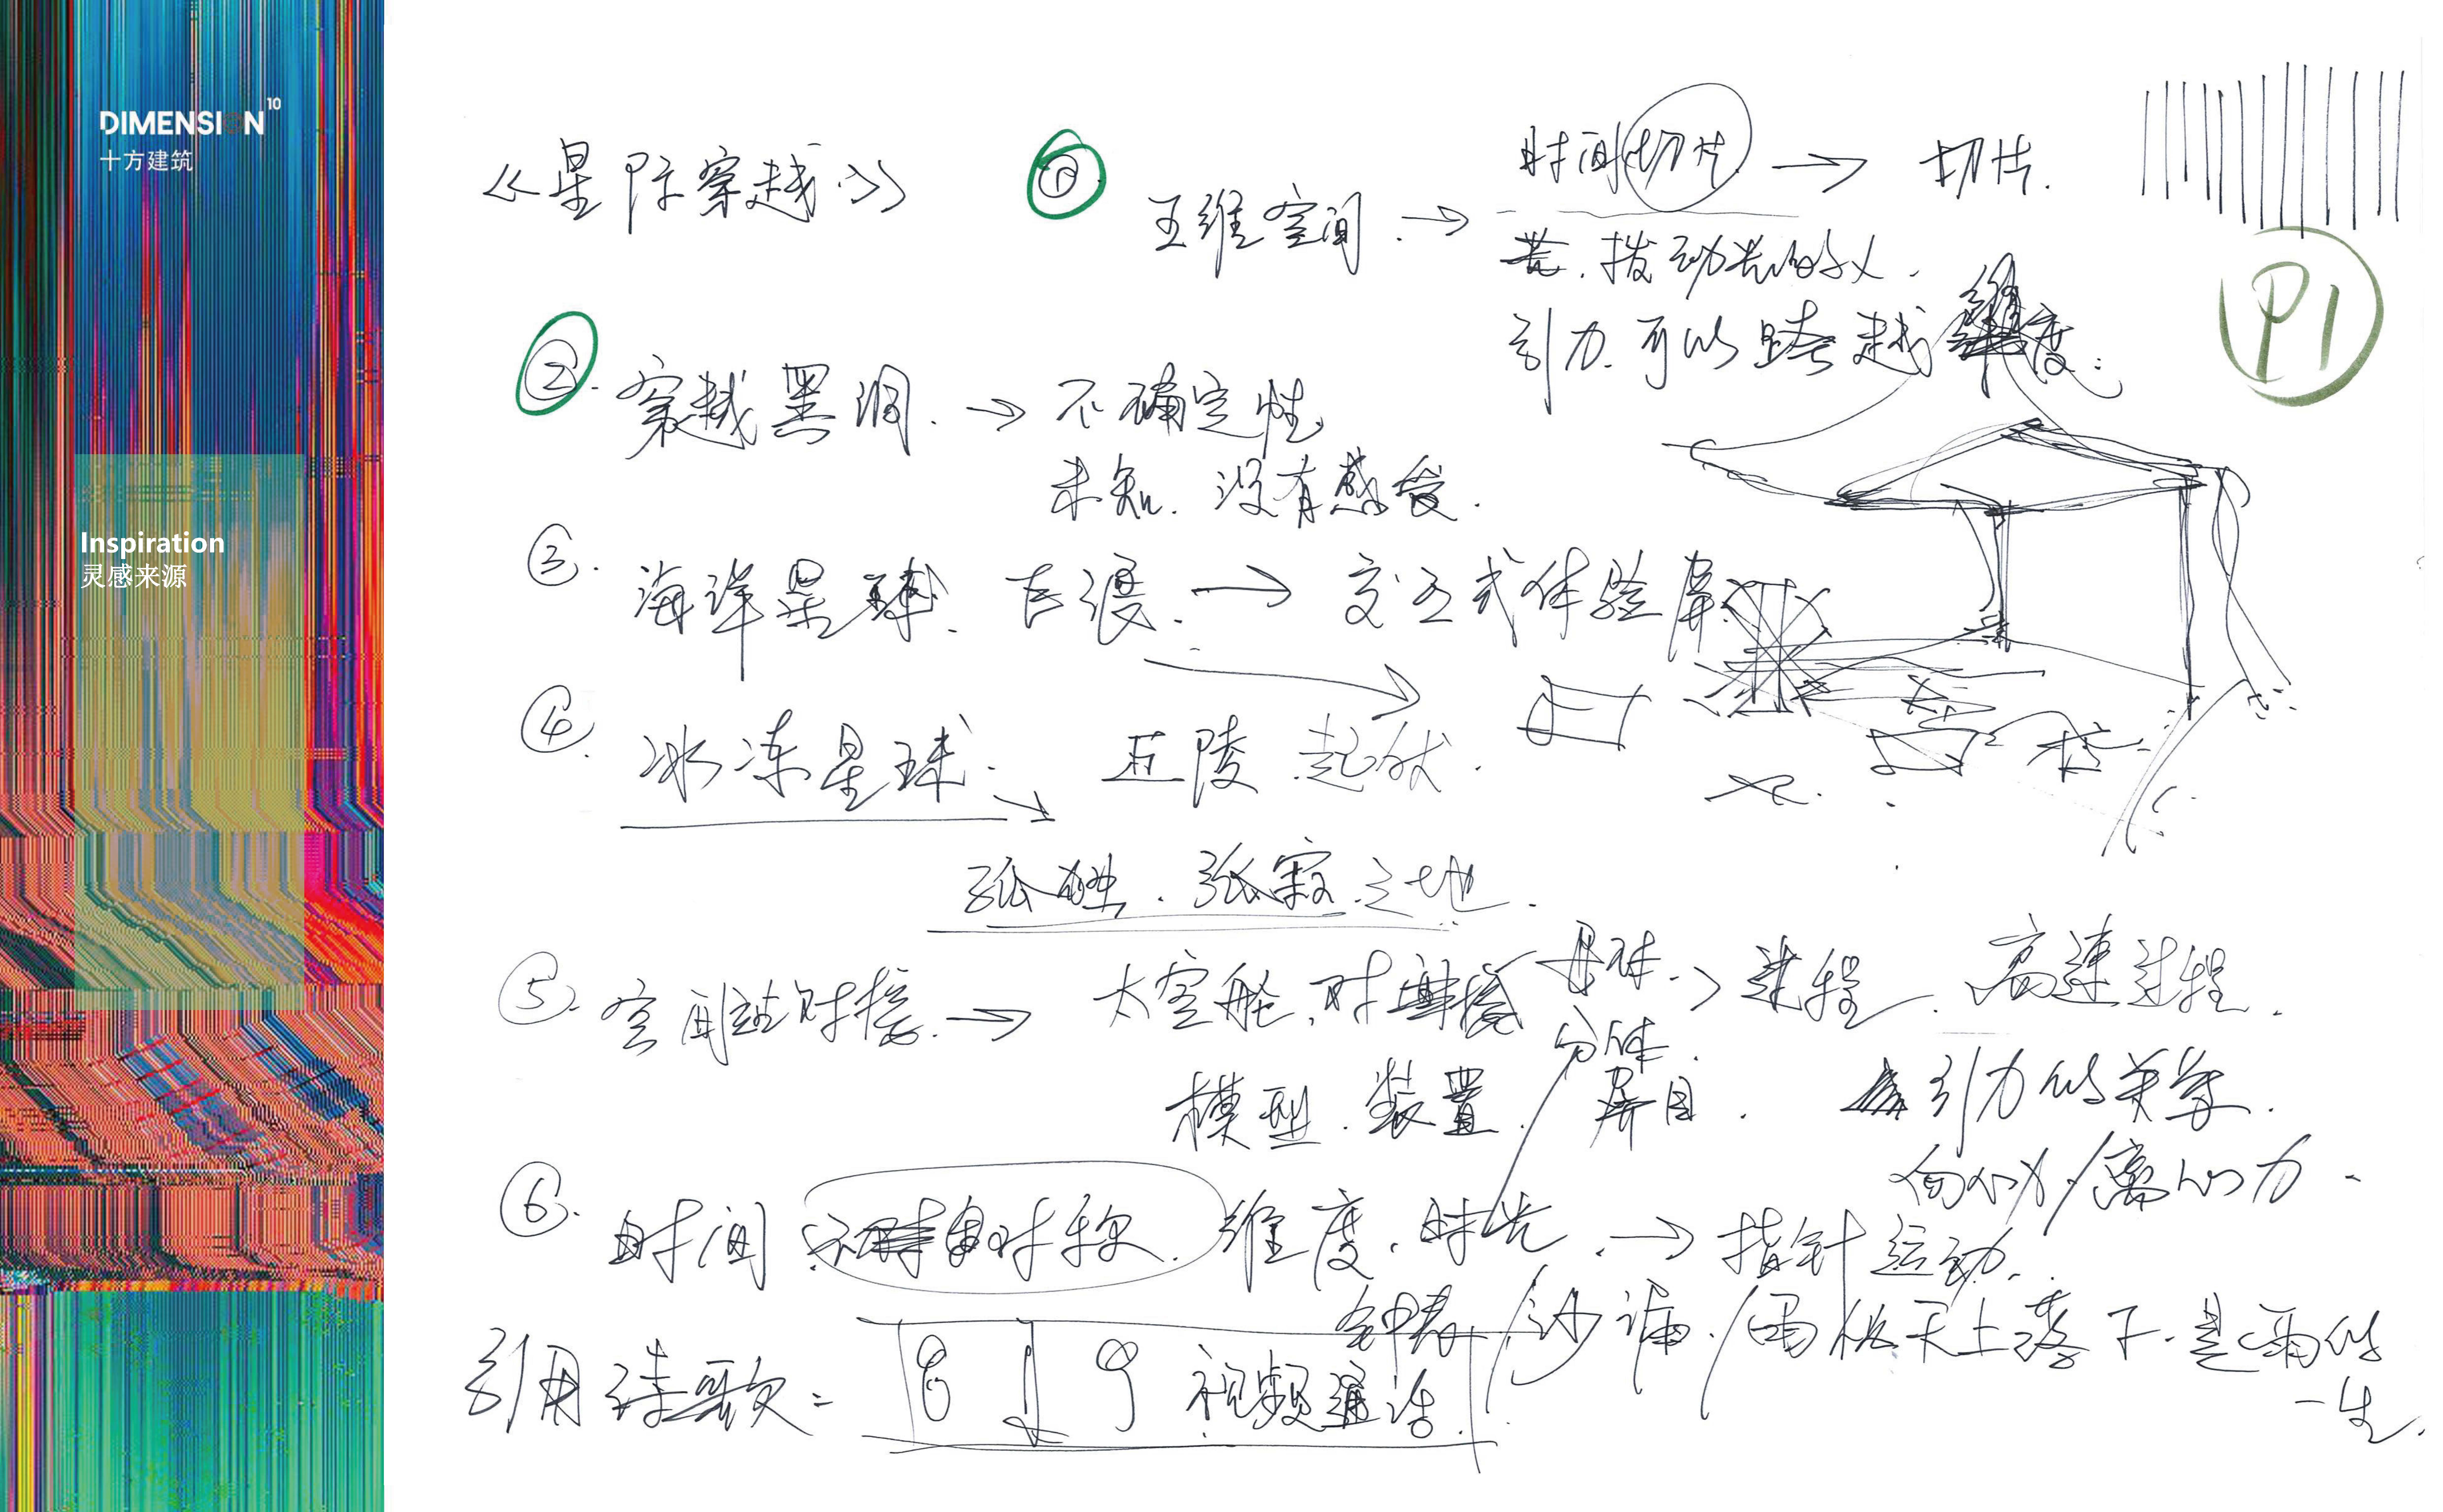 DIMENSION 10
十方建筑
Inspiration
灵感来源
《星际穿越》
① 五维空间 → 时间切片 → 切片.
拨动
引力可以跨越维度.
P1
②. 穿越黑洞. → 不确定性
未知. 没有感受.
③. 海洋星球. 巨浪. → 交互式体验屏
④. 冰冻星球. 丘陵起伏.
孤独. 孤寂之地.
⑤. 空间站对接. → 太空舱. 对接
母体. → 过程. 高速过程.
分体.
模型. 装置. 屏目.
引力的关系.
向心力/离心力.
⑥. 时间 对称. 维度. 时光. → 指针运动.
钟表/沙漏./雨从天上落下. 是雨的
一生.
引用诗歌:
视频通话.